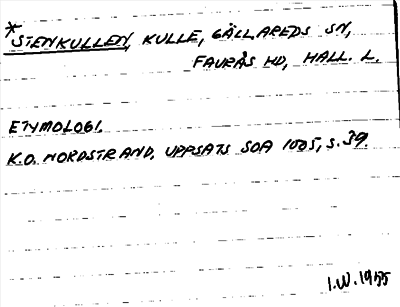 *STENKULLEN, KULLE, GÄLLAREDS SN,
FAURÅS HD, HALL. L.
ETYMOLOGI.
K.O. NORDSTRAND. UPPSATS SOA 1005, s. 39.
I.W. 1955